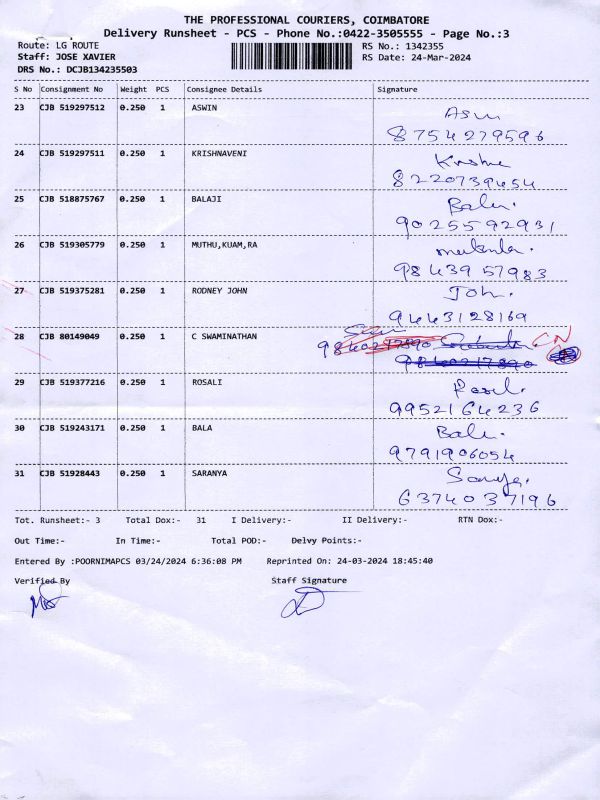 THE PROFESSIONAL COURIERS, COIMBATORE
Delivery Runsheet - PCS - Phone No.:0422-3505555 - Page No.:3
Route: LG ROUTE RS No.: 1342355
Staff: JOSE XAVIER RS Date: 24-Mar-2024
DRS No.: DCJB134235503
S No Consignment No Weight PCS Consignee Details Signature
23 CJB 519297512 0.250 1 ASWIN
8754279596
24 CJB 519297511 0.250 1 KRISHNAVENI
8220739454
25 CJB 518875767 0.250 1 BALAJI
9025592931
26 CJB 519305779 0.250 1 MUTHU,KUAM,RA
98439 57983
27 CJB 519375281 0.250 1 RODNEY JOHN Joh.
9443128169
28 CJB 80149049 0.250 1 C SWAMINATHAN
29 CJB 519377216 0.250 1 ROSALI
9952164236
30 CJB 519243171 0.250 1 BALA
9791906054
31 CJB 51928443 0.250 1 SARANYA
6374037196
Tot. Runsheet:- 3 Total Dox:- 31 I Delivery:- II Delivery:- RTN Dox:-
Out Time:- In Time:- Total POD:- Delvy Points:-
Entered By :POORNIMAPCS 03/24/2024 6:36:08 PM Reprinted On: 24-03-2024 18:45:40
Verified By Staff Signature